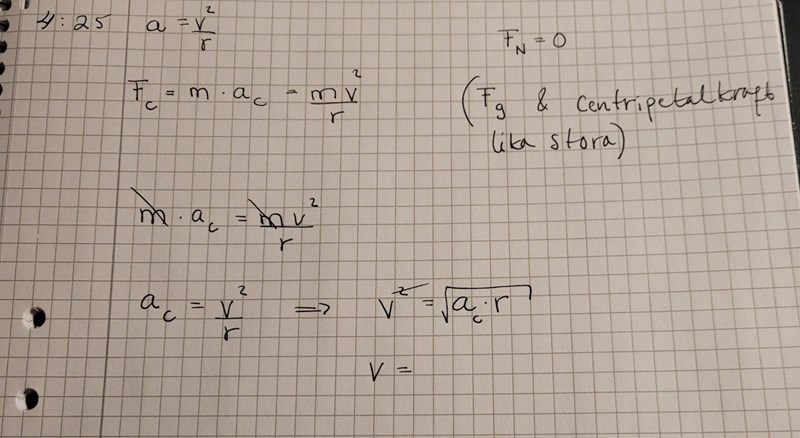 4:25 a = v²/r
F_N = 0
F_c = m · a_c = mv²/r
(F_g & centripetalkraft
lika stora)
m · a_c = mv²/r
a_c = v²/r ⇒ v² = √a_c · r
v =